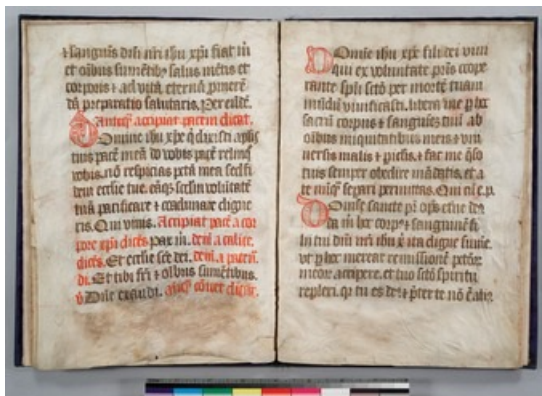 ⁊ sanguis dñi nr̃i ihu xpi fiat m̃
et oĩbus sumẽtibꝰ salus mẽtis et
corporis ⁊ ad vitã eternã
dã preparatio salutaris. Per eũdẽ.
Antiqꝫ accipiat pacem dicat.
Domine ihu xp̃e q̃ dixisti
tuis pacẽ meã do vobis pacẽ relinq̃
vobis. nõ respicias pctã mea sed fi
dem ecclie tue. eãqꝫ scdm volũtatẽ
tuã pacificare ⁊ coadunare digne
ris. Qui vivis. Accipiat pacẽ a cor
pore xpi dicẽs. Pax m̃. deñ a calice
dicẽs. Et ecclie sce dei. deñ. a patena.
di. Et tibi fr̃i ⁊ oĩbus sumẽtibus.
Dñe exaudi. dicat.
Domĩe ihu xp̃e fili dei vivi
qui ex voluntate pr̃is coope
rante spũ scto per mortẽ tuam
mũdũ vivificasti. libera me ꝑ hoc
sacrũ corpus ⁊ sanguinẽ tuũ ab
oĩbus iniquitatibus meis ⁊ uni
versis malis ⁊ ⁊ fac me q̃so
tuis semper obedire mãdatis. et a
te nũqꝫ segari permittas. Qui
Domĩe sancte pr̃ oĩps etñe deꝰ
da m̃ hoc corpꝰ ⁊ sanguinẽ fi
lii tui dñi nr̃i ihu x̃ ita digne sume.
ut ꝑ hoc merear remissionẽ pctõꝝ
meoꝝ accipere. et tuo scto spiritu
repleri. qr tu es deꝰ ⁊ preter te nõ ẽ alius.